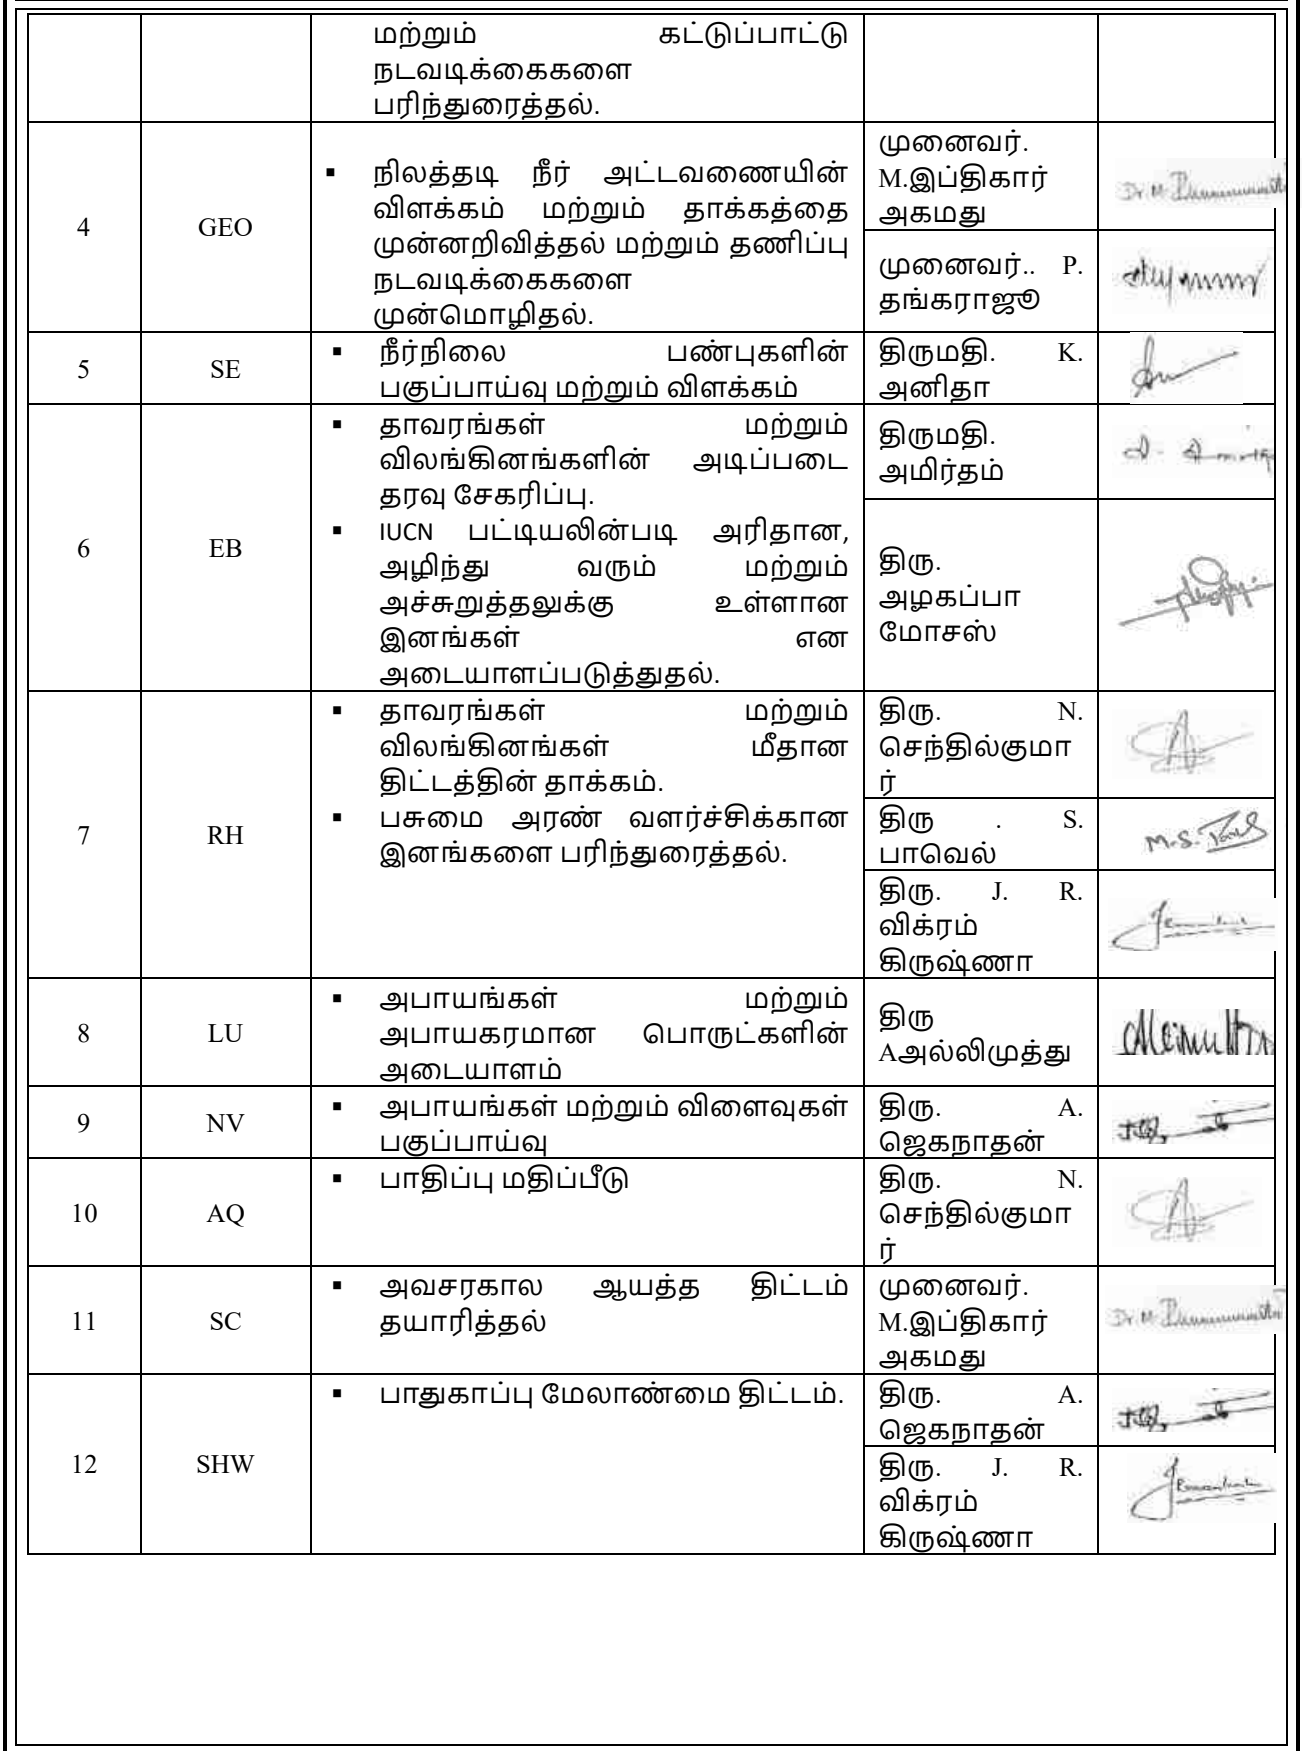 மற்றும் கட்டுப்பாட்டு
நடவடிக்கைகளை
பரிந்துரைத்தல்.
4
GEO
▪ நிலத்தடி நீர் அட்டவணையின்
விளக்கம் மற்றும் தாக்கத்தை
முன்னறிவித்தல் மற்றும் தணிப்பு
நடவடிக்கைகளை
முன்மொழிதல்.
முனைவர்.
M.இப்திகார்
அகமது
முனைவர்.. P.
தங்கராஜூ
5
SE
▪ நீர்நிலை பண்புகளின்
பகுப்பாய்வு மற்றும் விளக்கம்
திருமதி. K.
அனிதா
6
EB
▪ தாவரங்கள் மற்றும்
விலங்கினங்களின் அடிப்படை
தரவு சேகரிப்பு.
▪ IUCN பட்டியலின்படி அரிதான,
அழிந்து வரும் மற்றும்
அச்சுறுத்தலுக்கு உள்ளான
இனங்கள் என
அடையாளப்படுத்துதல்.
திருமதி.
அமிர்தம்
திரு.
அழகப்பா
மோசஸ்
7
RH
▪ தாவரங்கள் மற்றும்
விலங்கினங்கள் மீதான
திட்டத்தின் தாக்கம்.
▪ பசுமை அரண் வளர்ச்சிக்கான
இனங்களை பரிந்துரைத்தல்.
திரு. N.
செந்தில்குமா
ர்
திரு . S.
பாவெல்
M.S.
திரு. J. R.
விக்ரம்
கிருஷ்ணா
8
LU
▪ அபாயங்கள் மற்றும்
அபாயகரமான பொருட்களின்
அடையாளம்
திரு
Aஅல்லிமுத்து
9
NV
▪ அபாயங்கள் மற்றும் விளைவுகள்
பகுப்பாய்வு
திரு. A.
ஜெகநாதன்
10
AQ
▪ பாதிப்பு மதிப்பீடு
திரு. N.
செந்தில்குமா
ர்
11
SC
▪ அவசரகால ஆயத்த திட்டம்
தயாரித்தல்
முனைவர்.
M.இப்திகார்
அகமது
12
SHW
▪ பாதுகாப்பு மேலாண்மை திட்டம்.
திரு. A.
ஜெகநாதன்
திரு. J. R.
விக்ரம்
கிருஷ்ணா